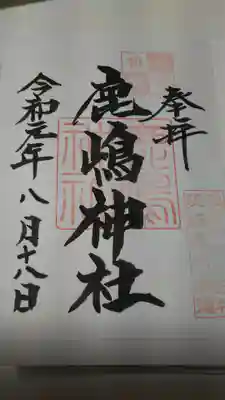 奉拝
鹿嶋神社
令和元年八月十八日